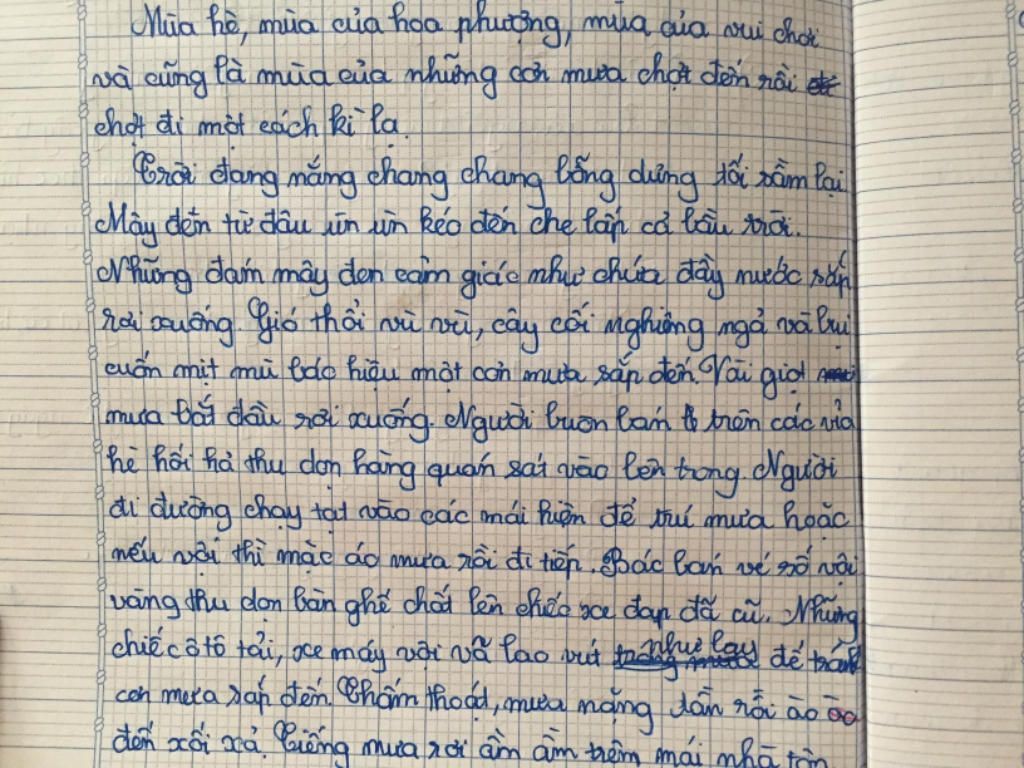 Mùa hè, mùa của hoa phượng, mùa của vui chơi
và cũng là mùa của những cơn mưa chợt đến rồi
chợt đi một cách kì lạ.
Trời đang nắng chang chang bỗng dưng tối sầm lại.
Mây đến từ đâu ùn ùn kéo đến che lấp cả bầu trời.
Những đám mây đen cảm giác như chứa đầy nước sắp
rơi xuống. Gió thổi vù vù, cây cối nghiêng ngả và bụi
cuốn mịt mù báo hiệu một cơn mưa sắp đến. Vài giọt
mưa bắt đầu rơi xuống. Người buôn bán trên các vỉa
hè hối hả thu dọn hàng quán sát vào bên trong. Người
đi đường chạy tạt vào các mái hiện để trú mưa hoặc
nếu vội thì mặc áo mưa rồi đi tiếp. Bác bán vé số vội
vàng thu dọn bàn ghế chất lên chiếc xe đạp đã cũ. Những
chiếc ô tô tải, xe máy vội vã lao vút như bay để tránh
cơn mưa sắp đến. Thấm thoát, mưa nặng dần rồi ào ào
đến xối xả. Tiếng mưa rơi ầm ầm trêm mái nhà tôn